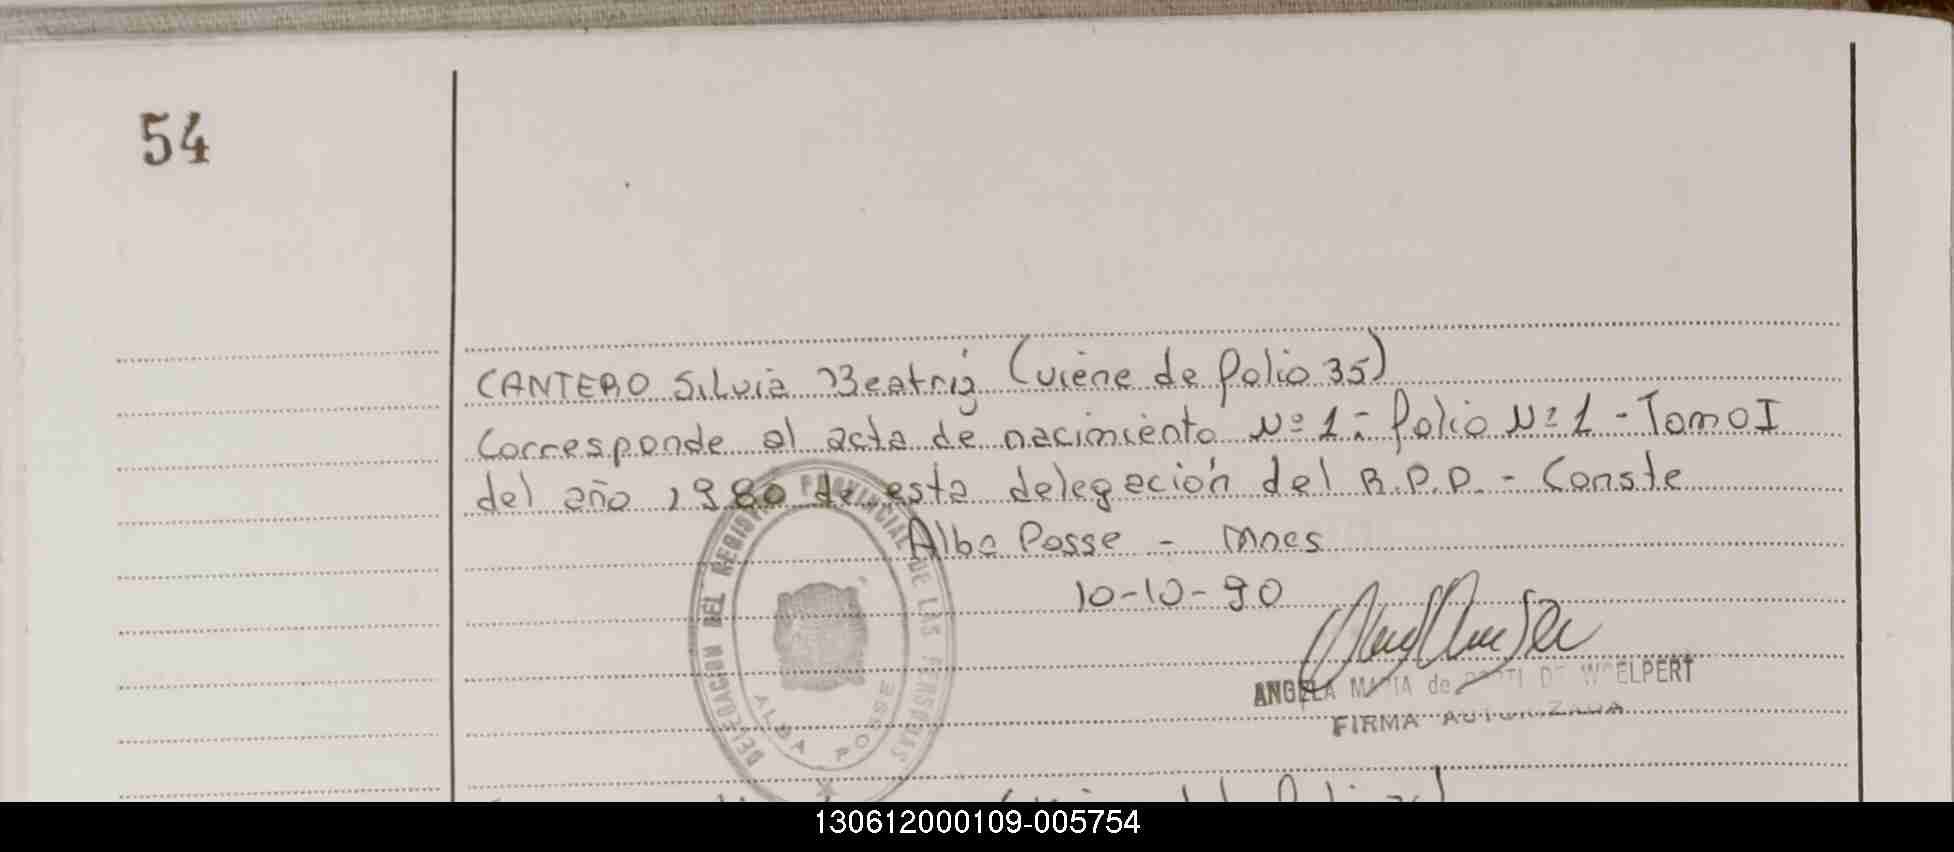 54
CANTERO Silvia Beatriz (viene de folio 35)
Corresponde al acta de nacimiento Nº 1 - folio Nº 1 - Tomo I
del año 1980 de esta delegación del R.P.P. - Conste
Alba Posse - Mnes
10-10-90
DELEGACION DEL REGISTRO PROVINCIAL DE LAS PERSONAS
ALBA POSSE
ANGELA MARIA de DE WOELPERT
FIRMA AUTORIZADA
130612000109-005754